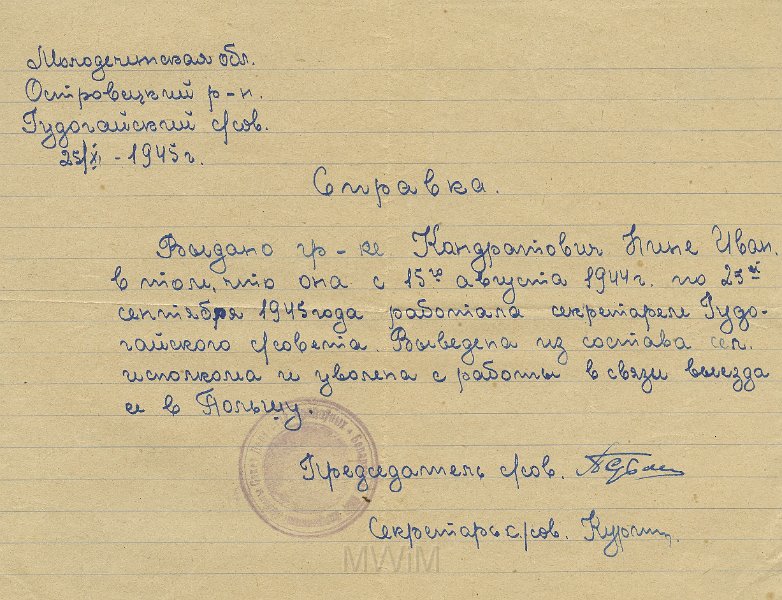 Молодечненская обл.
Островецкий р-н.
Гудогайский с/сов.
25/XI - 1945 г.
Справка.
Выдано гр-ке Кондратович Нине Иван.
в том, что она с 15го августа 1944 г. по 25ое
сентября 1945 года работала секретарем Гудо-
гайского с/совета. Выведена из состава
исполкома и уволена с работы в связи выезда
ее в Польшу.
Председатель с/сов.
Секретарь с/сов.
MWiM